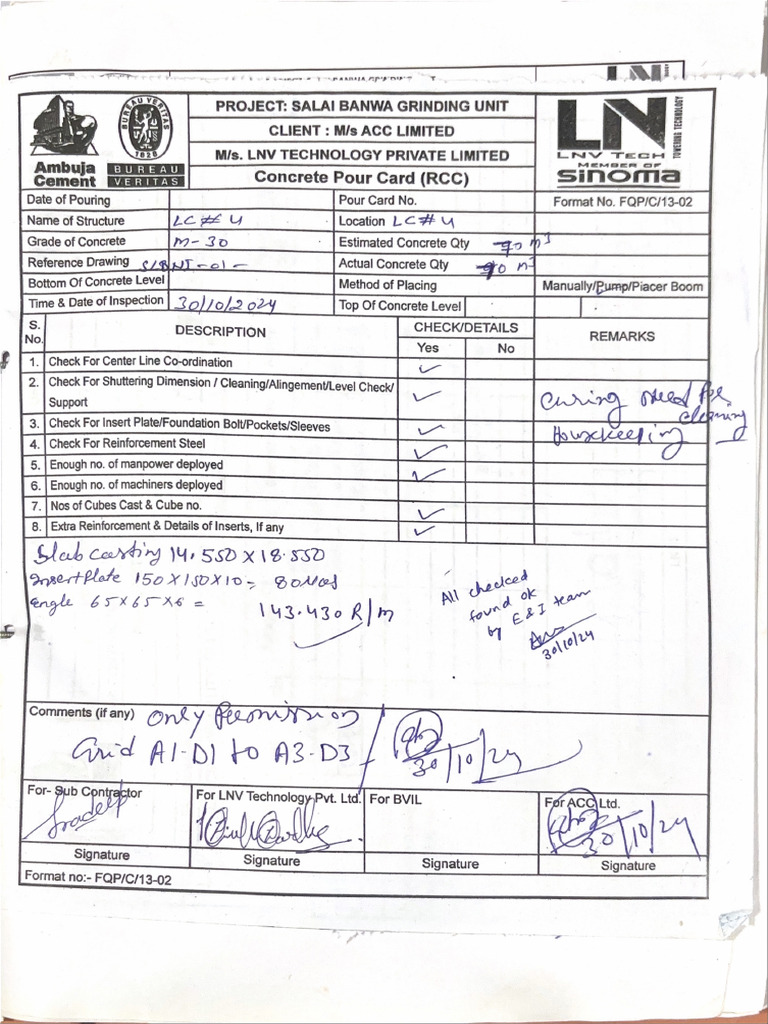 PROJECT: SALAI BANWA GRINDING UNIT
CLIENT : M/s ACC LIMITED
M/s. LNV TECHNOLOGY PRIVATE LIMITED
Concrete Pour Card (RCC)
Ambuja
Cement
BUREAU VERITAS
1828
BUREAU
VERITAS
LN
LNV TECH
MEMBER OF
sinoma
TOWERING TECHNOLOGY
Date of Pouring
Pour Card No.
Format No. FQP/C/13-02
Name of Structure LC#4
Location LC#4
Grade of Concrete M-30
Estimated Concrete Qty 90 m3
Reference Drawing
Actual Concrete Qty 90 m3
Bottom Of Concrete Level
Method of Placing
Manually/Pump/Piacer Boom
Time & Date of Inspection 30/10/2024
Top Of Concrete Level
S. No.
DESCRIPTION
CHECK/DETAILS
Yes No
REMARKS
1. Check For Center Line Co-ordination ✓
2. Check For Shuttering Dimension / Cleaning/Alingement/Level Check/
Support ✓
3. Check For Insert Plate/Foundation Bolt/Pockets/Sleeves ✓
4. Check For Reinforcement Steel ✓
5. Enough no. of manpower deployed ✓
6. Enough no. of machiners deployed
7. Nos of Cubes Cast & Cube no. ✓
8. Extra Reinforcement & Details of Inserts, If any ✓
Curing need for
cleaning
Housekeeping
Slab casting 14.550 X 18.550
Insert Plate 150 X 150 X 10 = 80 Nos
Angle 65 X 65 X 6 = 143.430 R/m
All checked
found ok
by E & I team
30/10/24
Comments (if any) Only Permission
Grid A1-D1 to A3-D3
30/10/24
For- Sub Contractor
For LNV Technology Pvt. Ltd.
For BVIL
For ACC Ltd.
Pradeep
30/10/24
Signature
Signature
Signature
Signature
Format no:- FQP/C/13-02